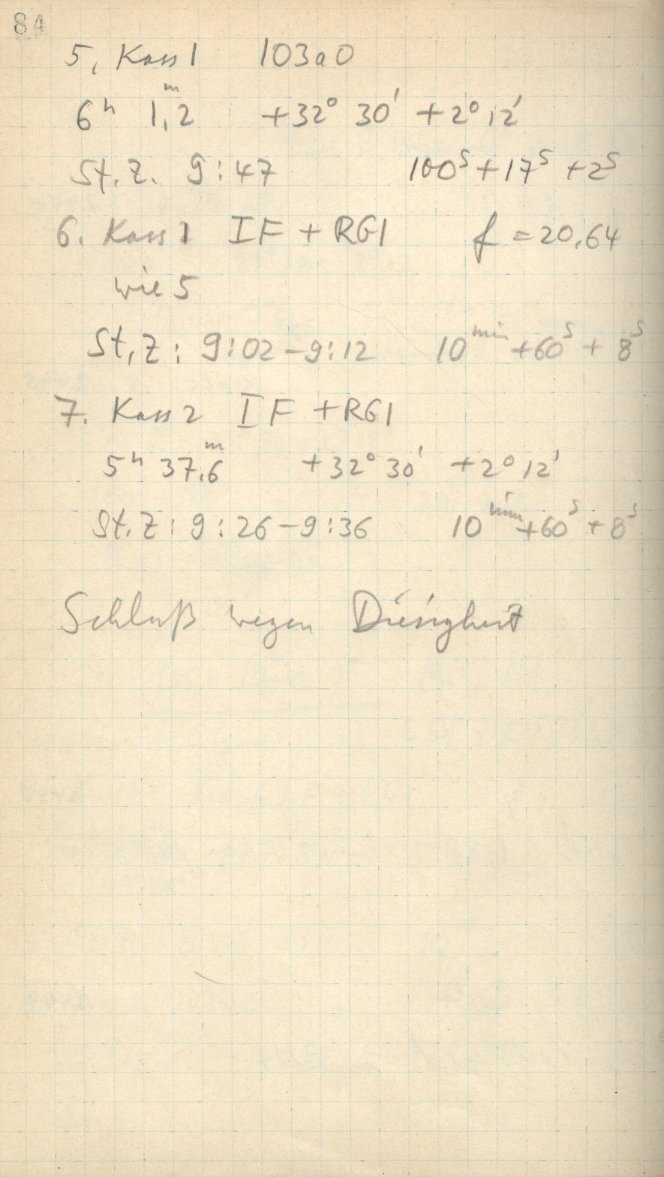 84
5. Kass 1 103a0
6ʰ 1,2ᵐ +32° 30' +2° 12'
St. Z. 9:47 100ˢ + 17ˢ + 2ˢ
6. Kass 1 IF + RG1 f = 20,64
wie 5
St. Z: 9:02 – 9:12 10ᵐⁱⁿ + 60ˢ + 8ˢ
7. Kass 2 IF + RG1
5ʰ 37,6ᵐ +32° 30' +2° 12'
St. Z: 9:26 – 9:36 10ᵐⁱⁿ + 60ˢ + 8ˢ
Schluß wegen Diesigkeit